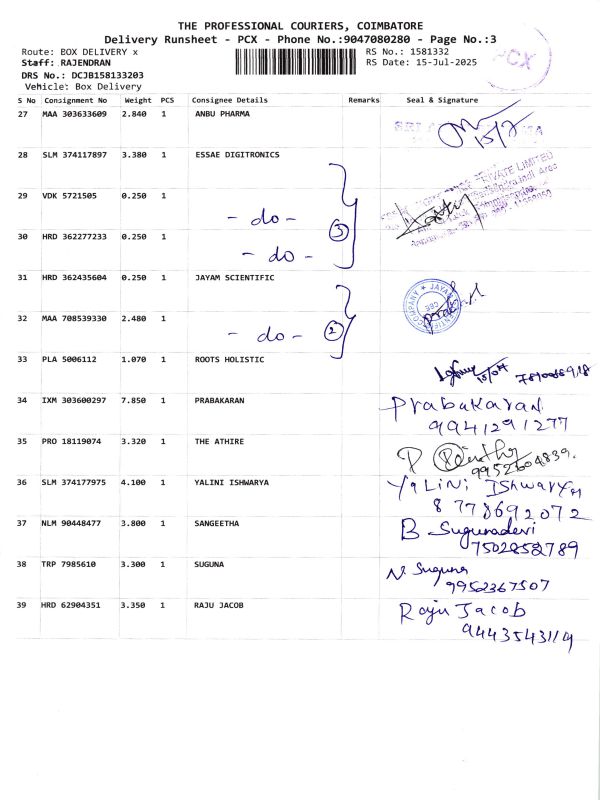 THE PROFESSIONAL COURIERS, COIMBATORE
Delivery Runsheet - PCX - Phone No.:9047080280 - Page No.:3
Route: BOX DELIVERY x RS No.: 1581332
Staff: RAJENDRAN RS Date: 15-Jul-2025
DRS No.: DCJB158133203
Vehicle: Box Delivery
PCX
S No Consignment No Weight PCS Consignee Details Remarks Seal & Signature
27 MAA 303633609 2.840 1 ANBU PHARMA
28 SLM 374117897 3.380 1 ESSAE DIGITRONICS
PRIVATE LIMITED
29 VDK 5721505 0.250 1 - do - 3
30 HRD 362277233 0.250 1 - do -
31 HRD 362435604 0.250 1 JAYAM SCIENTIFIC
32 MAA 708539330 2.480 1 - do - 2
33 PLA 5006112 1.070 1 ROOTS HOLISTIC
34 IXM 303600297 7.850 1 PRABAKARAN Prabakaran
9941291277
35 PRO 18119074 3.320 1 THE ATHIRE
9952604839.
36 SLM 374177975 4.100 1 YALINI ISHWARYA YaLiNi IShwarya
8778692072
37 NLM 90448477 3.800 1 SANGEETHA B Sugunadevi
7502852789
38 TRP 7985610 3.300 1 SUGUNA N. Suguna
9952367507
39 HRD 62904351 3.350 1 RAJU JACOB Raju Jacob
9443543114